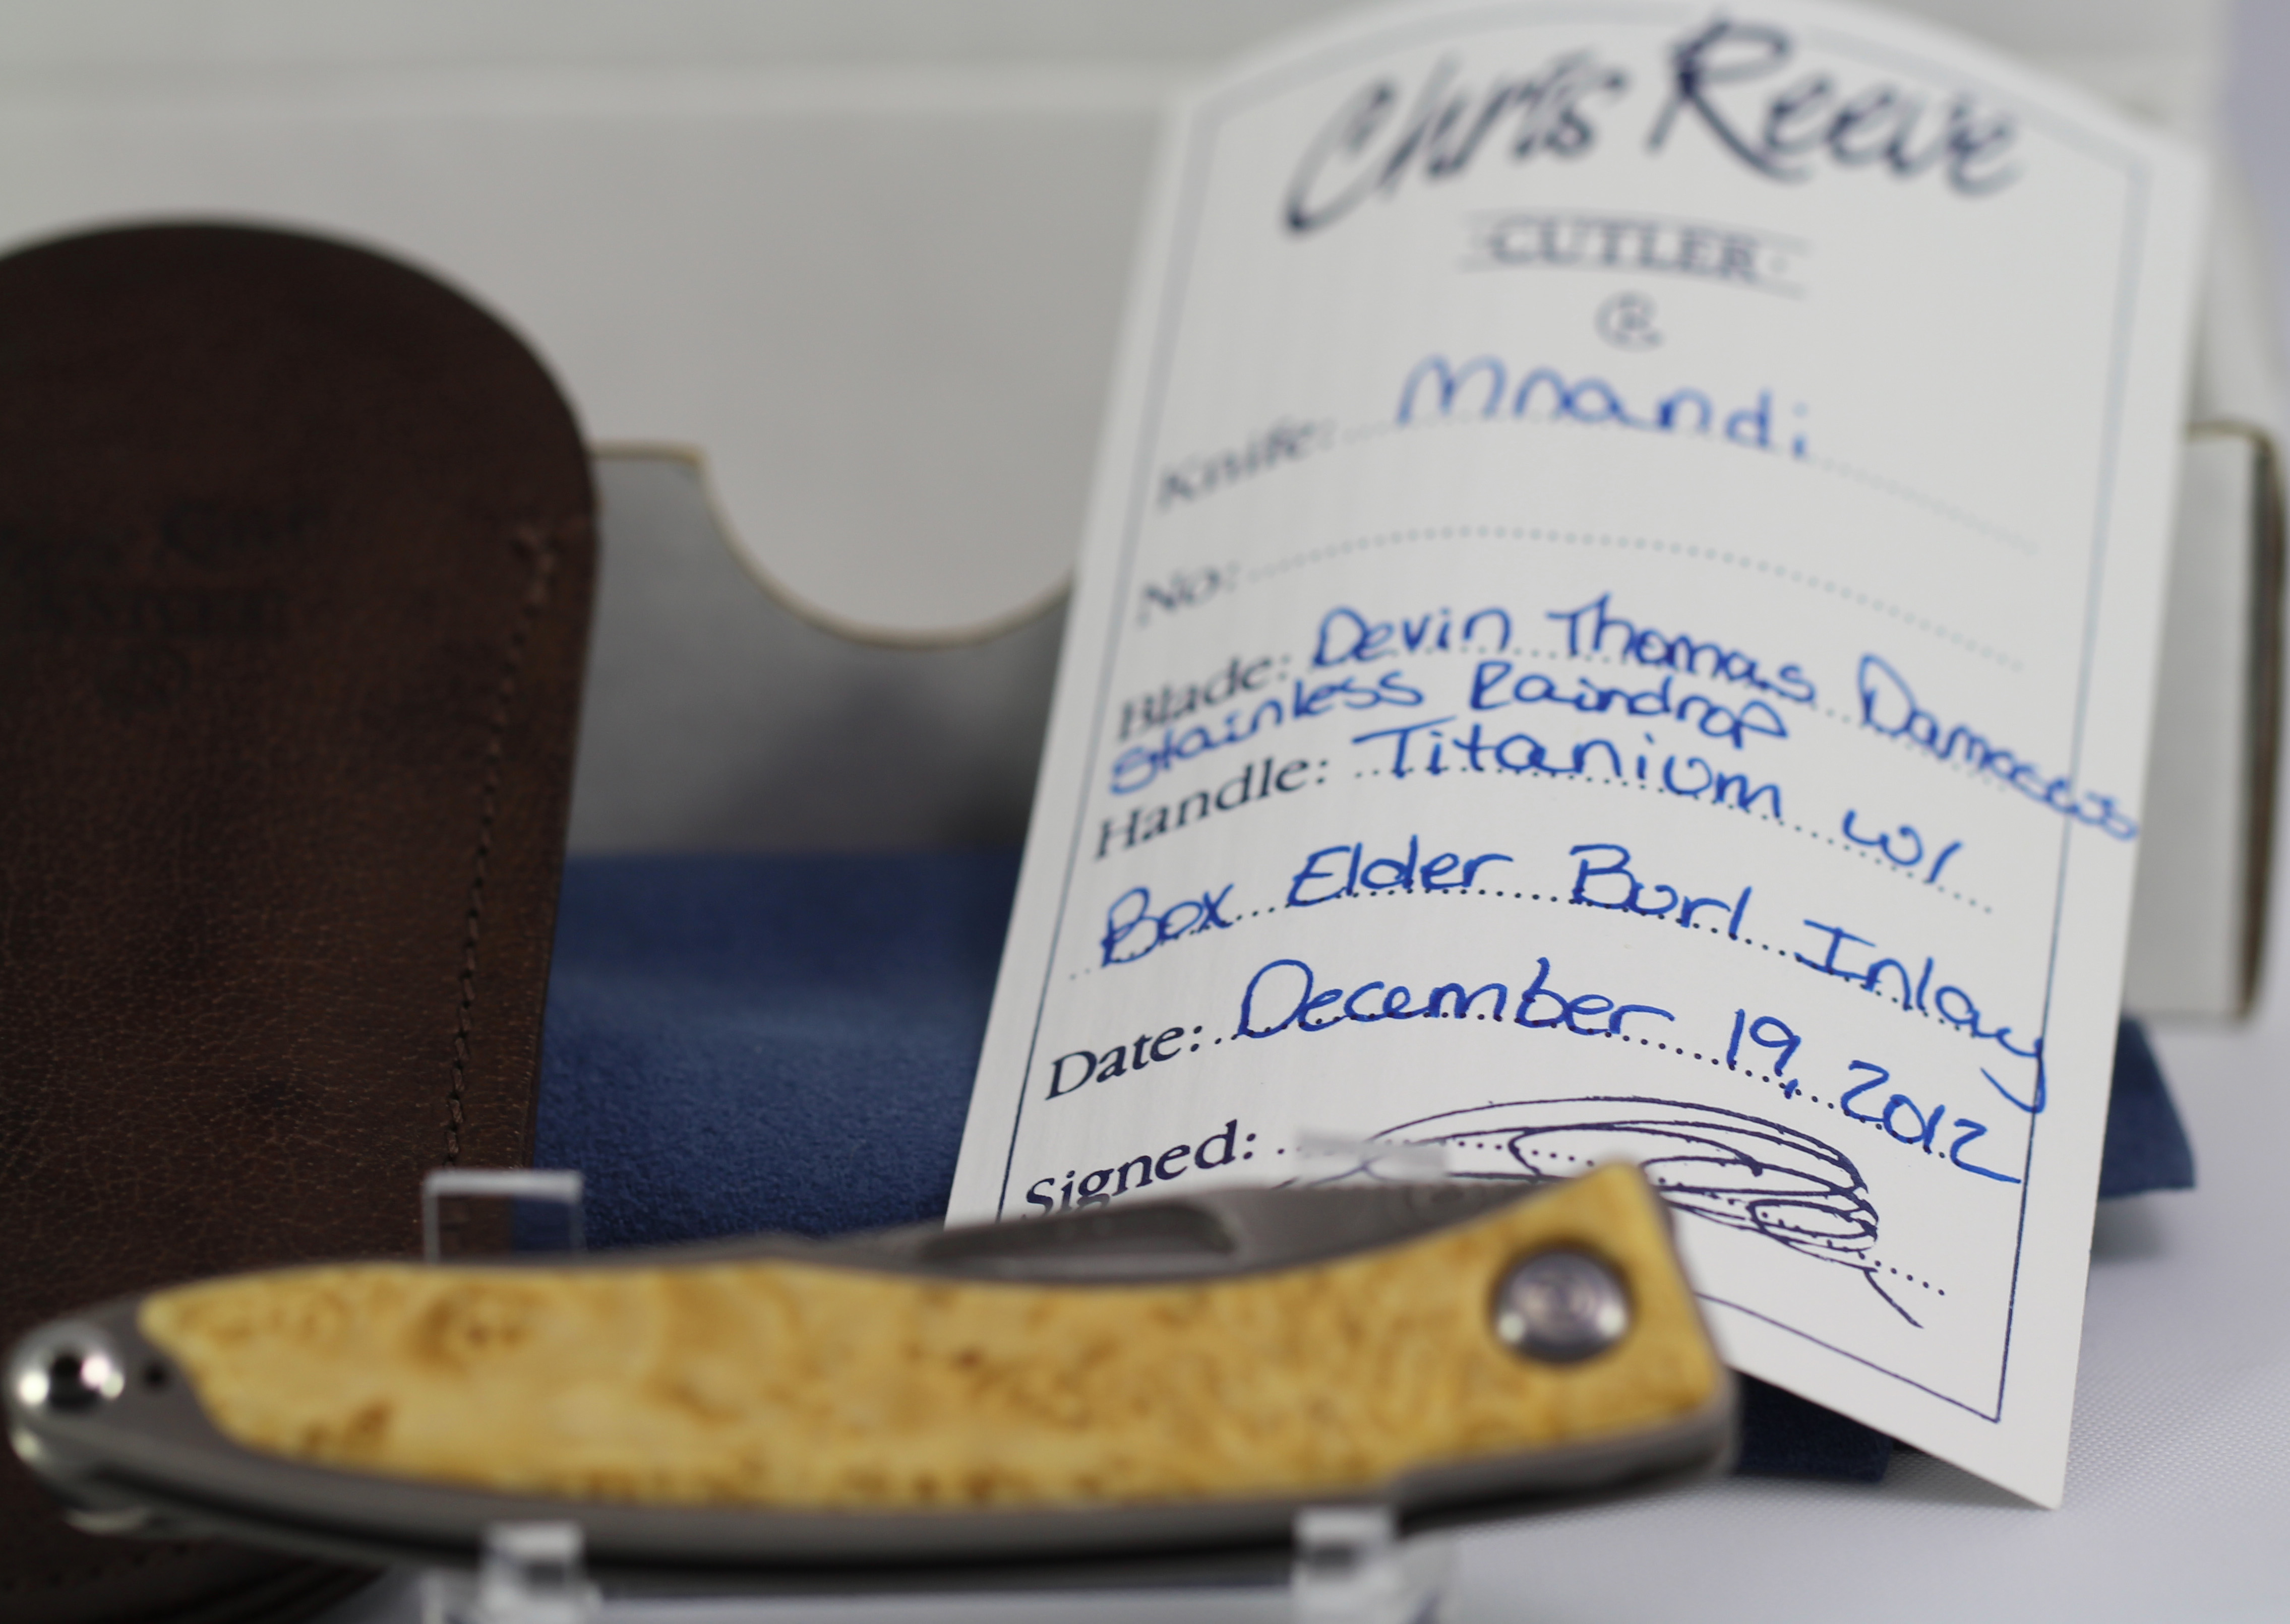 Chris Reeve
·CUTLER·
Knife: Mnandi
No:
Blade: Devin Thomas Damascus
Stainless Raindrop
Handle: Titanium w/
Box Elder Burl Inlay
Date: December 19, 2012
Signed: